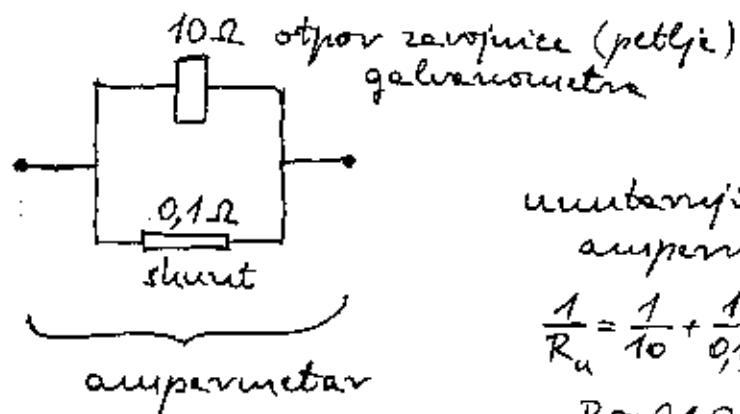 10 Ω otpor zavojnice (petlje)
galvanometra
0,1 Ω
shunt
ampermetar
unutarnji
amperm
1/R_u = 1/10 + 1/0,1